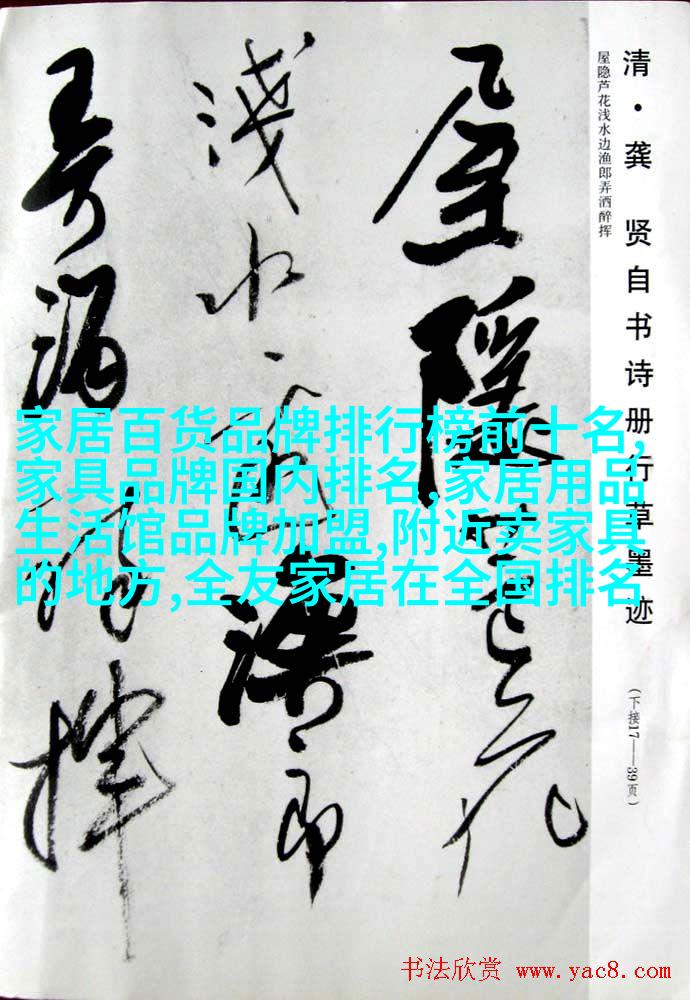 清·龚 贤自书诗册行草墨迹
屋隐芦花浅水边渔郎弄洒醉挥
(下接17——39页)
屋隐芦花
浅水边渔郎
弄酒醉挥
家居百货品牌排行榜前十名,
家具品牌国内排名,家居用品
生活馆品牌加盟,附近卖家具
的地方,全友家居在全国排名
书法欣赏 www.yac8.com